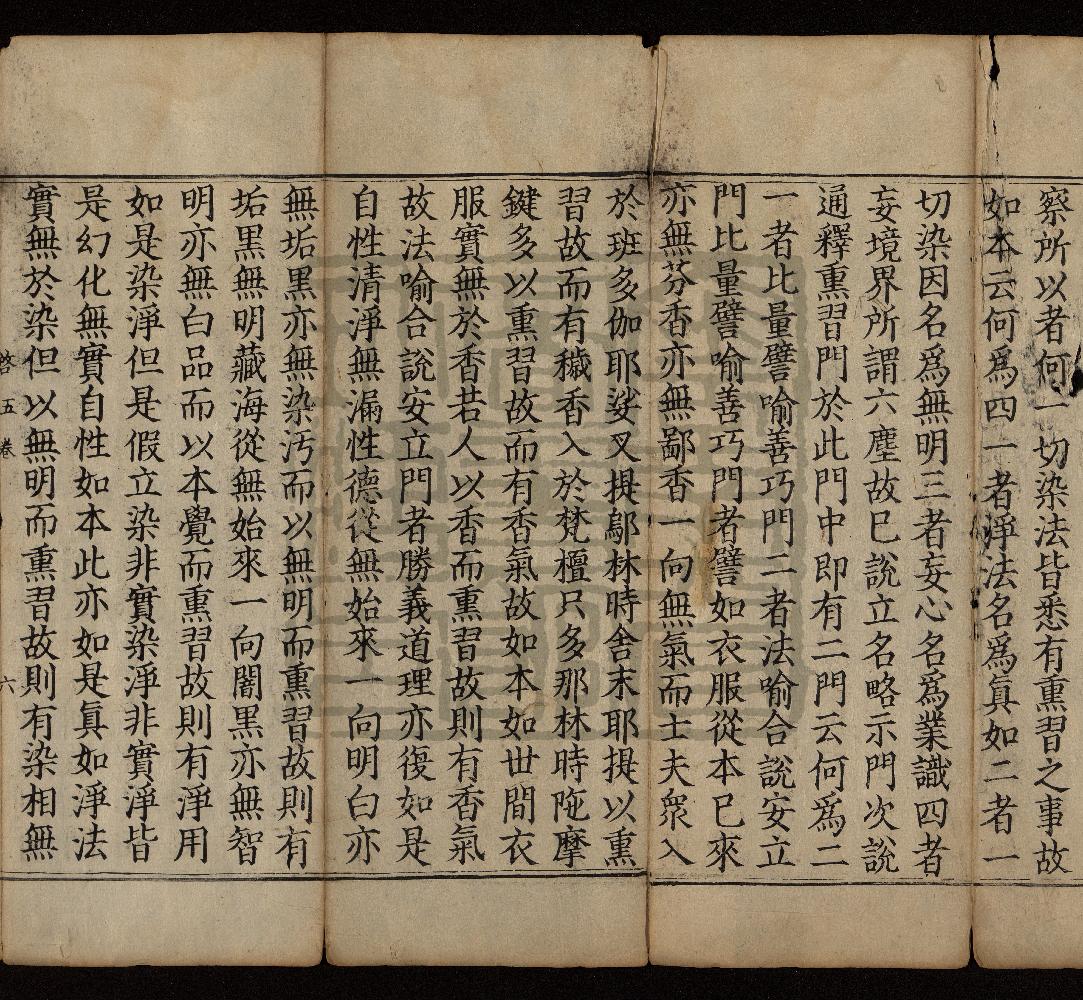 察所以者何一切染法皆悉有熏習之事故
如本云何爲四一者淨法名爲眞如二者一
切染因名爲無明三者妄心名爲業識四者
妄境界所謂六塵故已說立名略示門次說
通釋熏習門於此門中即有二門云何爲二
一者比量譬喻善巧門二者法喻合說安立
門比量譬喻善巧門者譬如衣服從本已來
亦無芬香亦無鄙香一向無氣而士夫眾入
於班多伽耶娑叉提鄔林時舍末耶提以熏
習故而有穢香入於梵檀只多那林時陁摩
鍵多以熏習故而有香氣故如本如世間衣
服實無於香若人以香而熏習故則有香氣
故法喻合說安立門者勝義道理亦復如是
自性清淨無漏性德從無始來一向明白亦
無垢黑亦無染汚而以無明而熏習故則有
垢黑無明藏海從無始來一向闇黑亦無智
明亦無白品而以本覺而熏習故則有淨用
如是染淨但是假立染非實染淨非實淨皆
是幻化無實自性如本此亦如是眞如淨法
實無於染但以無明而熏習故則有染相無
五 卷 六